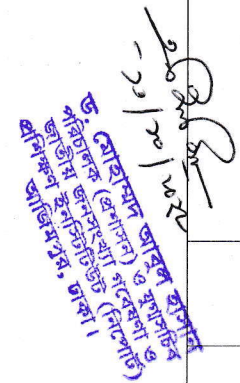 ড. মোহাম্মদ আবুল হাসান
পরিচালক (প্রশাসন) ও যুগ্মসচিব
জাতীয় জনসংখ্যা গবেষণা ও
প্রশিক্ষণ ইনস্টিটিউট (নিপোর্ট)
আজিমপুর, ঢাকা।